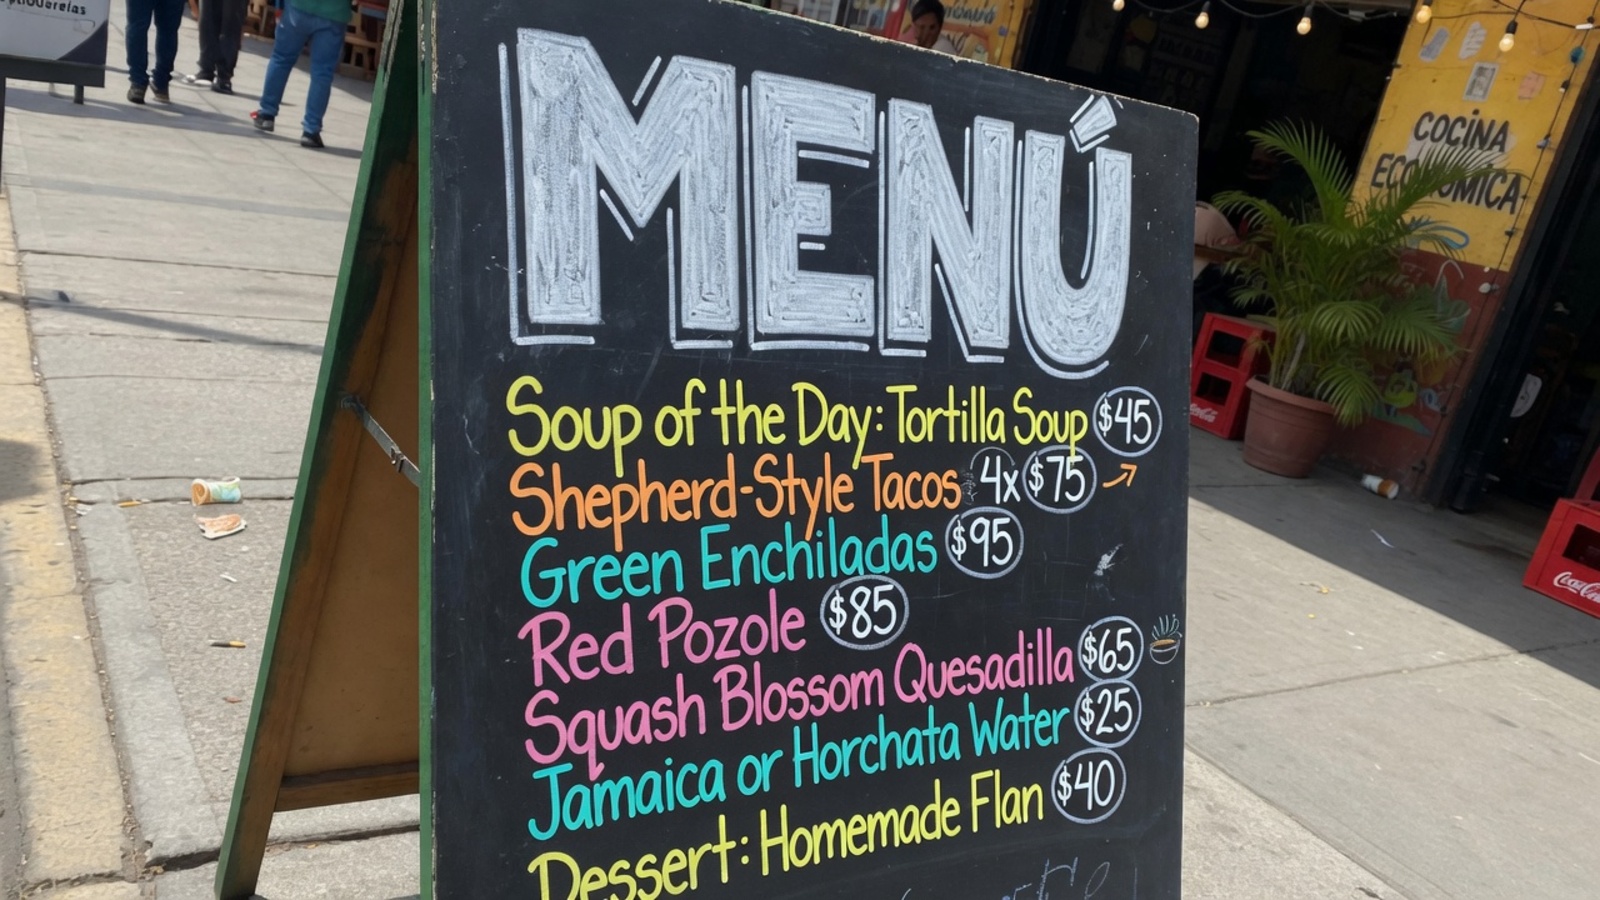 MENÚ
Soup of the Day: Tortilla Soup $45
Shepherd-Style Tacos 4x $75
Green Enchiladas $95
Red Pozole $85
Squash Blossom Quesadilla $65
Jamaica or Horchata Water $25
Dessert: Homemade Flan $40
COCINA
ECONÓMICA
Coca-Cola
Coca-Cola